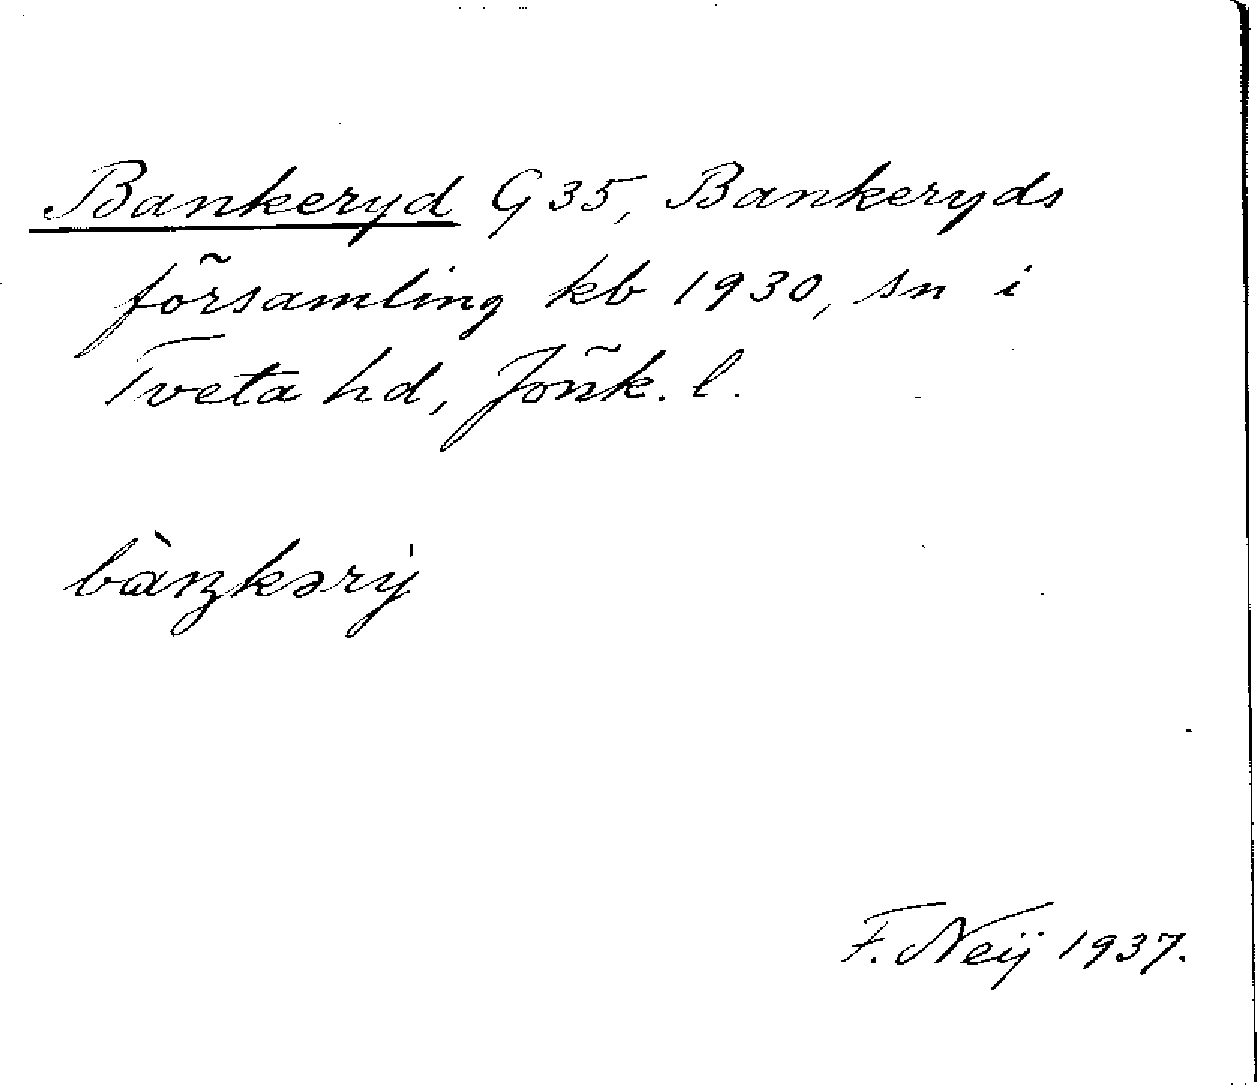 Bankeryd G 35, Bankeryds
församling kb 1930, sn i
Tveta hd, Jönk. l.
bàŋkəry̍
F. Neij 1937.